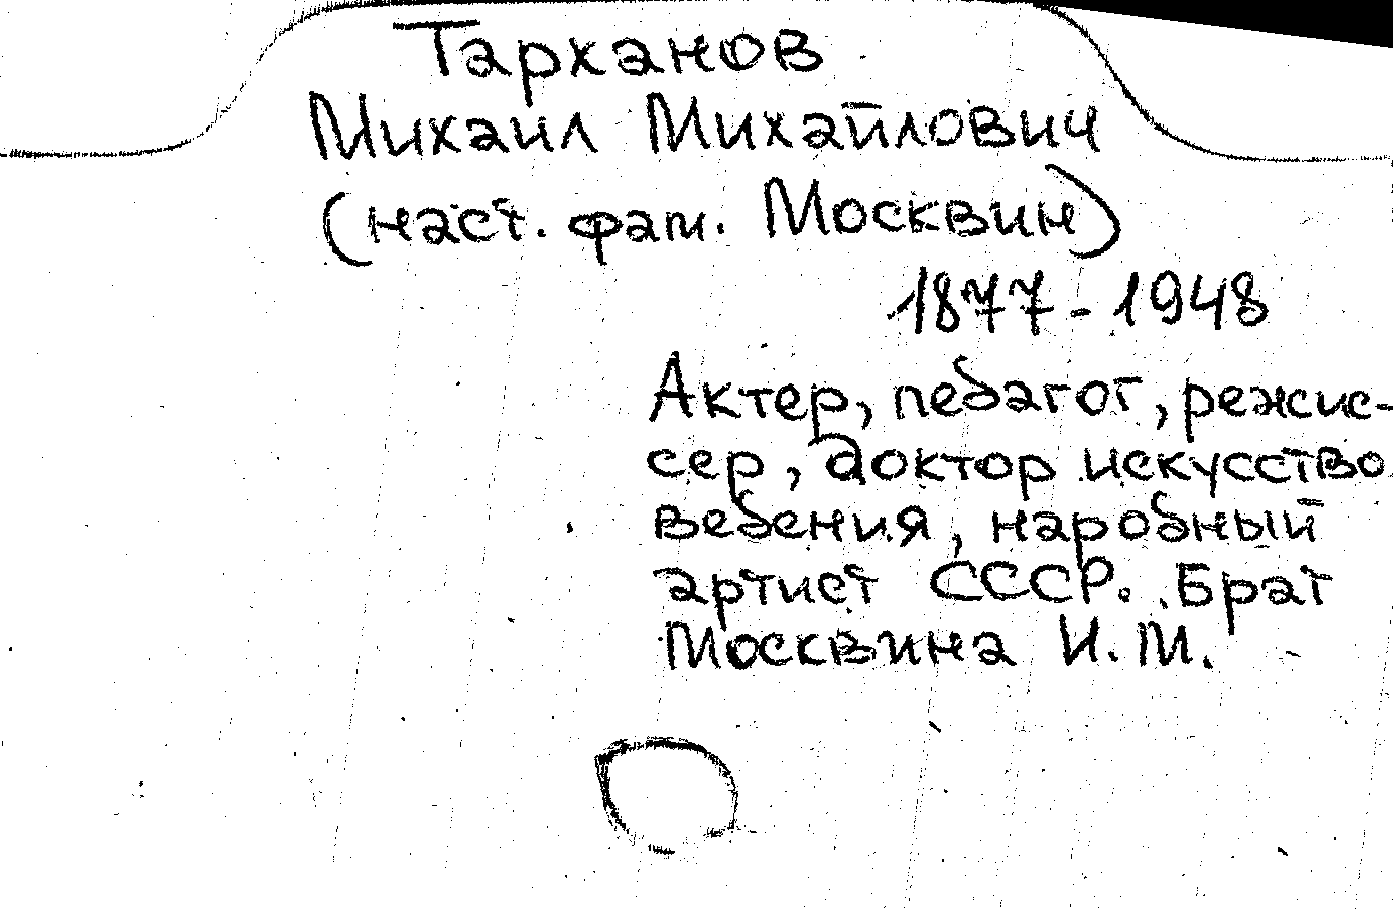 Тарханов
Михаил Михайлович
(наст. фам. Москвин)
1877-1948
Актер, педагог, режис-
сер, доктор искусство
ведения, народный
артист СССР. Брат
Москвина И.М.